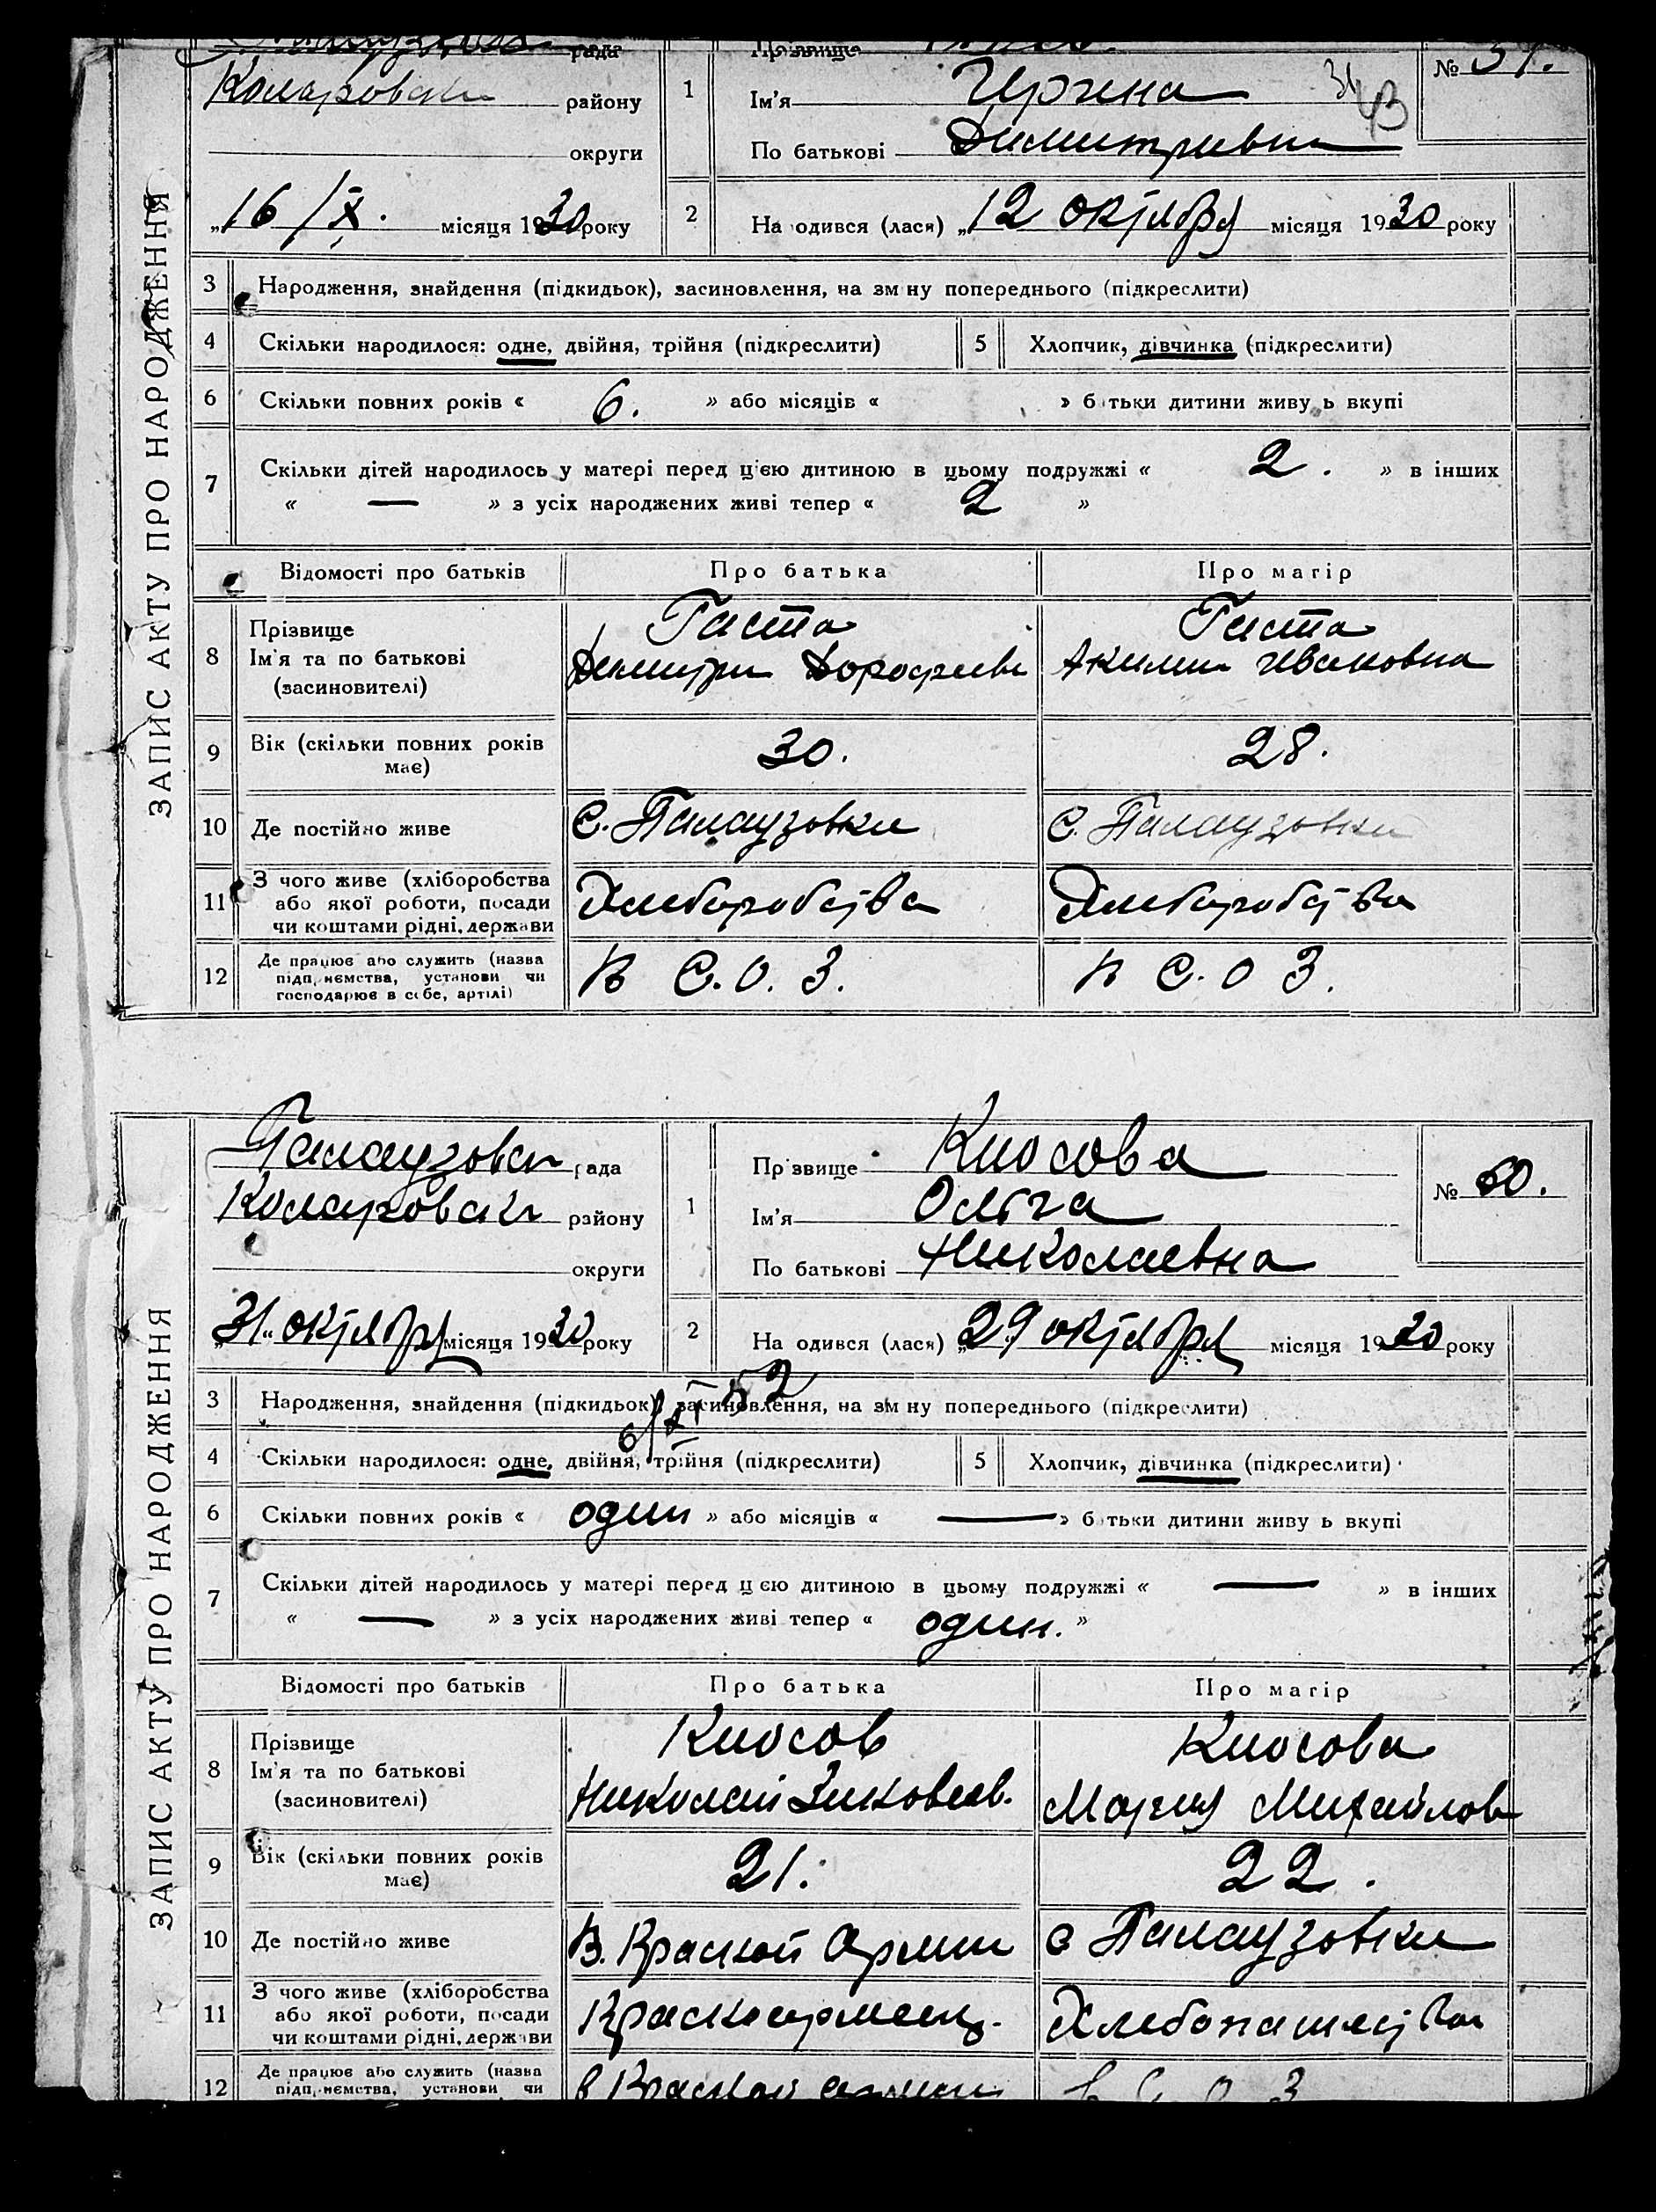 рада
Прізвище
Коларовски району
1
Ім'я Ирина
№
По батькові Димитриевна
округи
„16/X. місяця 1930 року
2
На одився (лася) „12 октября місяця 1930 року
ЗАПИС АКТУ ПРО НАРОДЖЕННЯ
3 Народження, знайдення (підкидьок), засиновлення, на зм ну попереднього (підкреслити)
4 Скільки народилося: одне, двійня, трійня (підкреслити) 5 Хлопчик, дівчинка (підкреслити)
6 Скільки повних років « 6. » або місяців « » б тьки дитини живу ь вкупі
7 Скільки дітей народилось у матері перед цією дитиною в цьому подружжі « 2. » в інших
« — » з усіх народжених живі тепер « 2 »
Відомості про батьків Про батька Про матір
8 Прізвище
Ім'я та по батькові
(засиновителі)
Гиста
Димитри Дорофеев
Гиста
Акилина Ивановна
9 Вік (скільки повних років
має)
30.
28.
10 Де постійно живе С. Палаузовки С. Палаузовки
11 З чого живе (хліборобства
або якої роботи, посади
чи коштами рідні, держави
Хлеборобства Хлеборобства
12 Де працює або служить (назва
підп иємства, установи чи
господарює в себе, артілі)
в С.О.З. в С.О З.
Палаузовск рада
Коларовски району
округи
„31„ октября місяця 1930 року
1
Пр звище Кносова
Ім'я Ольга
По батькові Николаевна
№ 60.
2
На одився (лася) „29 октября місяця 1930 року
ЗАПИС АКТУ ПРО НАРОДЖЕННЯ
3 Народження, знайдення (підкидьок), засиновлення, на зм ну попереднього (підкреслити)
4 Скільки народилося: одне, двійня, трійня (підкреслити) 5 Хлопчик, дівчинка (підкреслити)
6 Скільки повних років « один » або місяців « — » б тьки дитини живу ь вкупі
7 Скільки дітей народилось у матері перед ц єю дитиною в цьому подружжі « — » в інших
« — » з усіх народжених живі тепер « один. »
Відомості про батьків Про батька Про матір
8 Прізвище
Ім'я та по батькові
(засиновителі)
Кносов
Николай Зиновеев.
Кносова
Мария Михайлов
9 Вік (скільки повних років
має)
21.
22.
10 Де постійно живе В. Красной Армии с Палаузовки
11 З чого живе (хліборобства
або якої роботи, посади
чи коштами рідні, держави
Красноармеец. Хлебопашества
12 Де працює або служить (назва
підп иємства, установи чи
в Красной армии в С О З